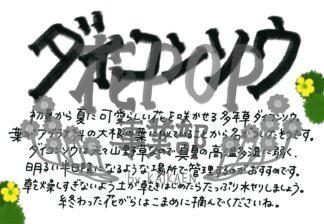 ダイコンソウ
花POP
初夏から夏に可愛らしい花を咲かせる多年草ダイコンソウ。
葉がアブラナ科の大根の葉に似ていることから名がついたそうです。
ダイコンソウはとて山野草なので真夏の高温多湿に弱く、
明るい半日陰になるような場所で管理するのがおすすめです。
by KAIKAEN
乾燥しすぎないよう土が乾きはじめたらたっぷり水やりしましょう。
終わった花からはこまめに摘んでくださいね。